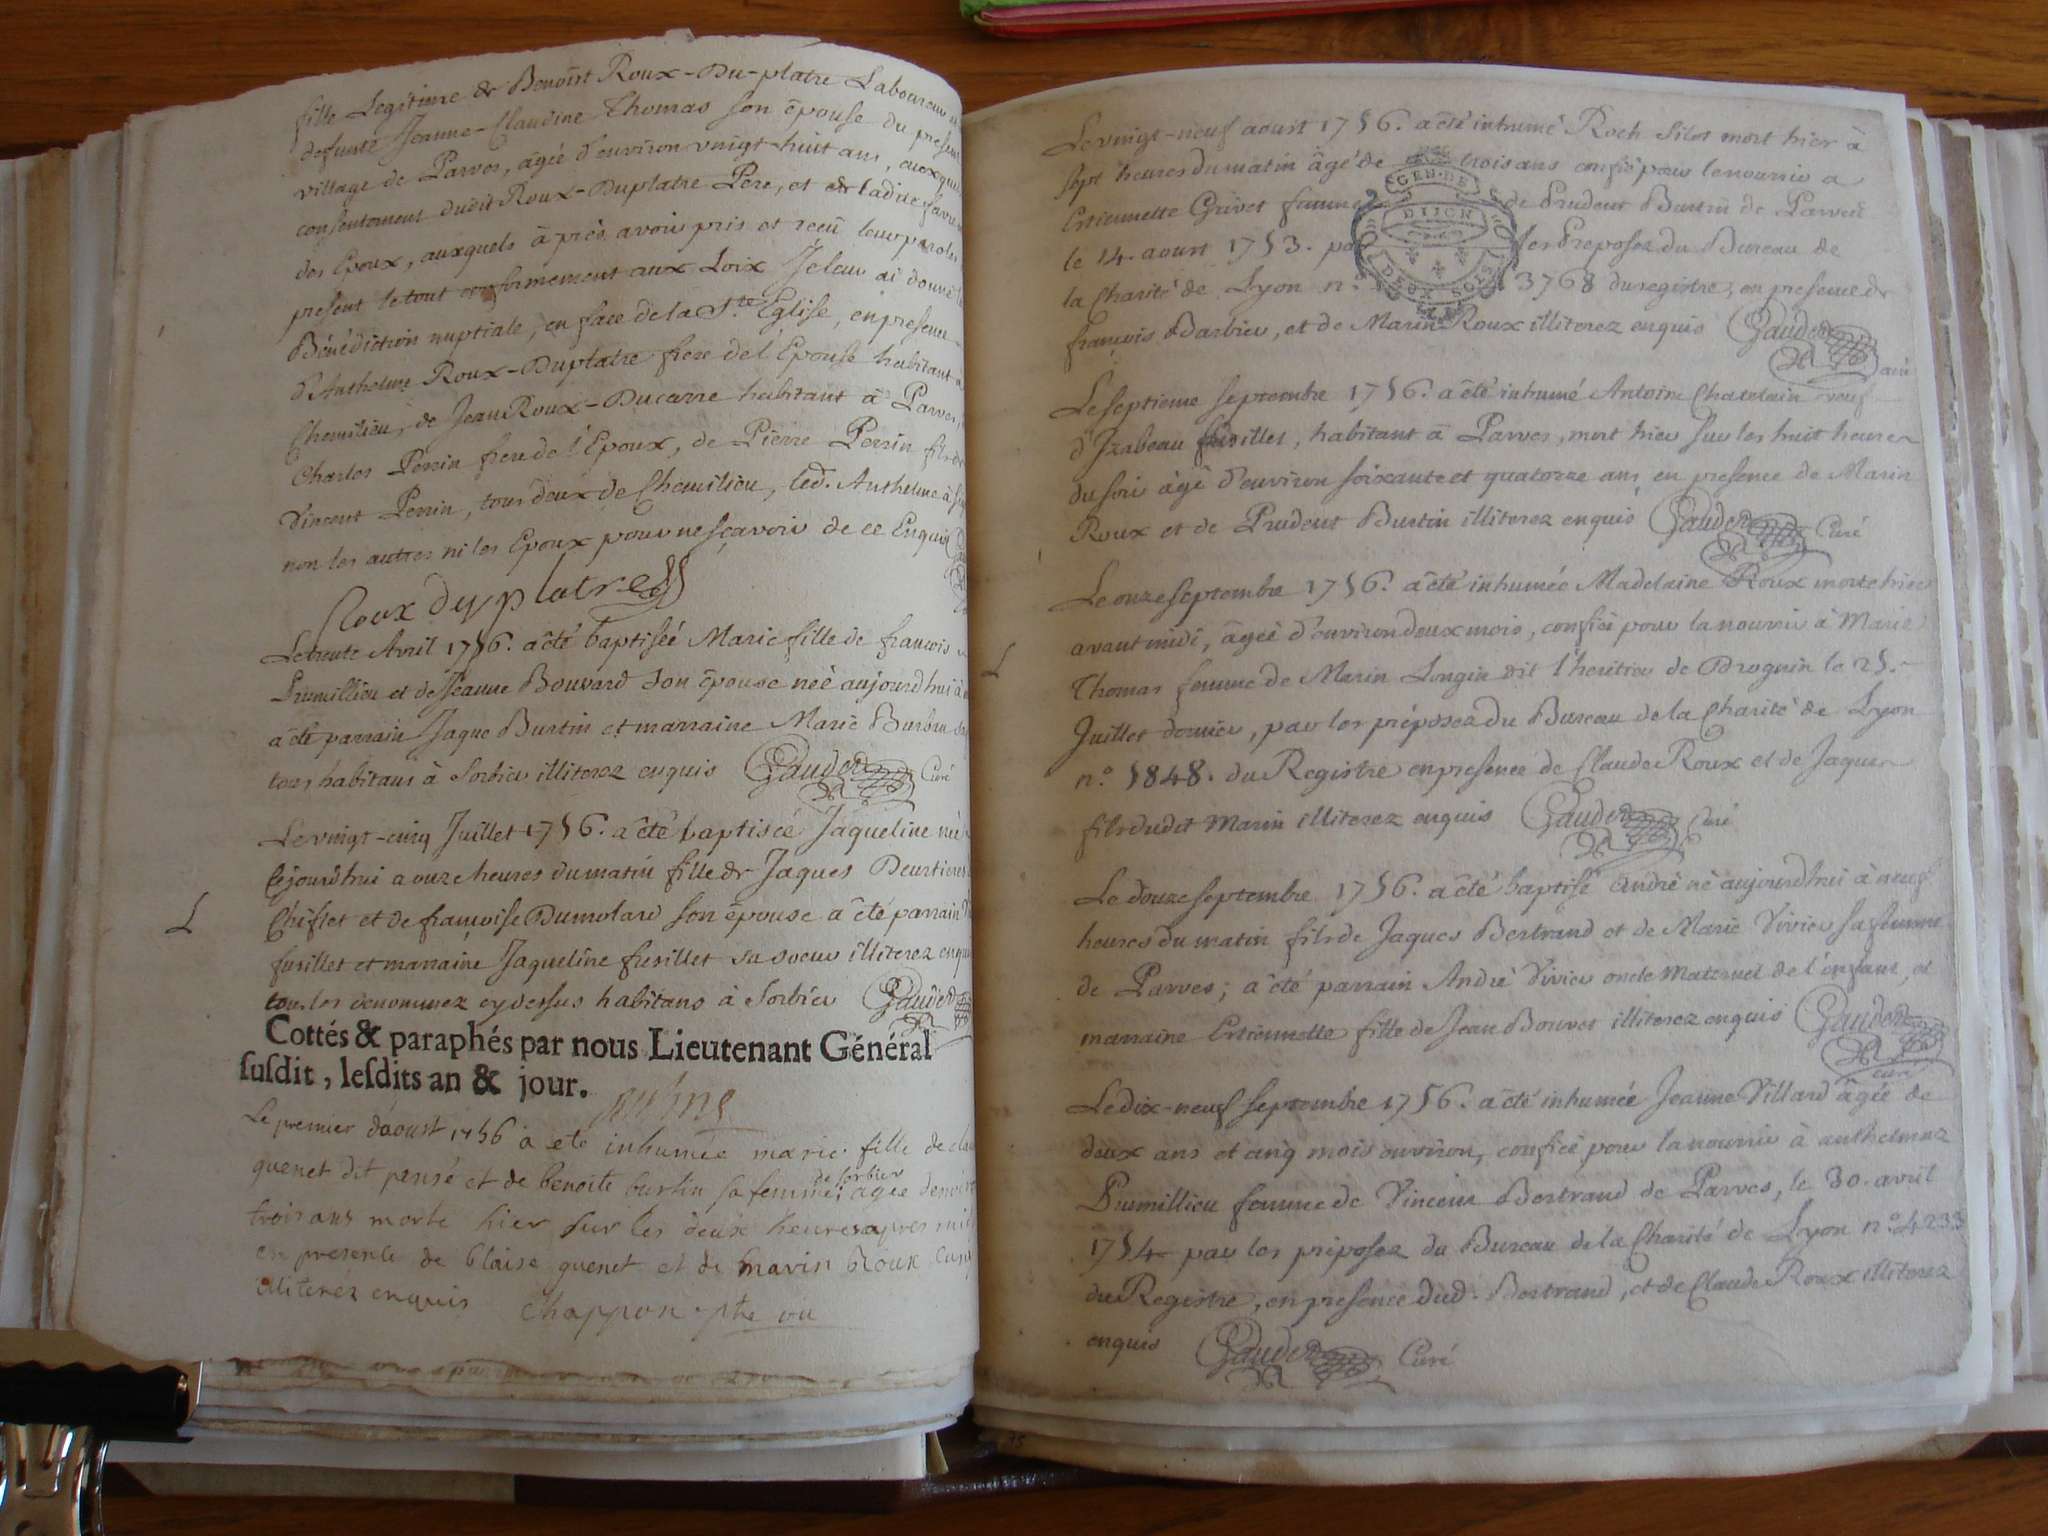 fille Legitime de Benoist Roux-Du-platre Laboureur
defunte Jeanne-Claudine Thomas son épouse du present
village de Parves, âgée d'environ vingt-huit ans,
consentement dudit Roux-Duplatre Pere, et de ladite
des Epoux, auxquels âprès avoir pris et receü leurs paroles
present le tout conformement aux Loix Je leur ai donné
Bénédiction nuptiale, en face de la Ste Eglise, en presence
d'Anthelme Roux-Duplatre frere de l'Epouse habitant
Chemilieu, de Jean Roux-Ducarre habitant à Parves,
Charles Perrin frere de l'Epoux, de Pierre Perrin fils de
Vincent Perrin, tous deux de Chemilieu, led. Anthelme
non les autres ni les Epoux pour ne sçavoir de ce Enquis
Roux duplatre
Le trente Avril 1756. a été baptiseé Marie fille de françois
Prumillieu et de Jeanne Bouvard son épouse neé aujourd'hui
a été parrain Jaque Burtin et marraine Marie
tous habitans à Sorbier illiterez enquis Gauder Curé
Le vingt-cinq Juillet 1756. a été baptiseé Jaqueline neé
Cejourdhui a onze heures du matin fille de Jaques
Chiflet et de françoise Dumolard son épouse a été parrain
fusillet et marraine Jaqueline fusillet sa soeur illiterez enquis
tous les denommez cy dessus habitans à Sorbier Gauder
Cottés & paraphés par nous Lieutenant Général
susdit, lesdits an & jour.
L
Le premier daoust 1756 a eté inhumée marie fille de
guenet dit pensé et de benoite burtin sa femme, de sorbier agée
trois ans morte hier sur les deux heures apres midi
en presence de blaise guenet et de marin Roux
illiterez enquis Chappon ptre
Le vingt-neuf aoust 1756. a été inhumé Roch Silot mort hier à
sept heures du matin âgé de trois ans confié pour le nourrir a
Estiennette Grivet femme de Prudent Burtin de Parves
le 14. aoust 1753. par les Preposez du Bureau de
la Charité de Lyon n.° 3768 du registre, en presence de
françois Barbier, et de Marin Roux illiterez enquis Gauder
GEN. DE
DIJON
DEUX SOLS
Le septieme septembre 1756. a été inhumé Antoine Chatelain veuf
d'Izabeau fusillet, habitant à Parves, mort hier sur les huit heures
du soir âgé d'environ soixante et quatorze ans en presence de Marin
Roux et de Prudent Burtin illiterez enquis Gauder Curé
Le onze septembre 1756. a été inhumée Madelaine Roux morte hier
avant midi, âgeé d'environ deux mois, confiée pour la nourrir à Marie
L
Thomas femme de Marin Longin dit l'heritier de Brognin le 25.
Juillet dernier, par les préposez du Bureau de la Charité de Lyon
n.° 5848. du Registre en presence de Claude Roux et de Jaques
fils dudit Marin illiterez enquis Gauder Curé
Le douze septembre 1756. a été baptisé André né aujourdhui à neuf
heures du matin fils de Jaques Bertrand et de Marie Vivier sa femme
de Parves; a été parrain André Vivier oncle Maternel de l'enfant, et
marraine Estiennette fille de Jean Bouvet illiterez enquis Gauder
Curé
Le dix-neuf septembre 1756. a été inhumée Jeanne Villard âgée de
deux ans et cinq mois environ, confiée pour la nourrir à anthelmaz
Prumillieu femme de Vincent Bertrand de Parves, le 30. avril
1754 par les préposez du Bureau de la Charité de Lyon n.° 4233
du Registre, en presence dud. Bertrand, et de Claude Roux illiterez
enquis Gauder Curé